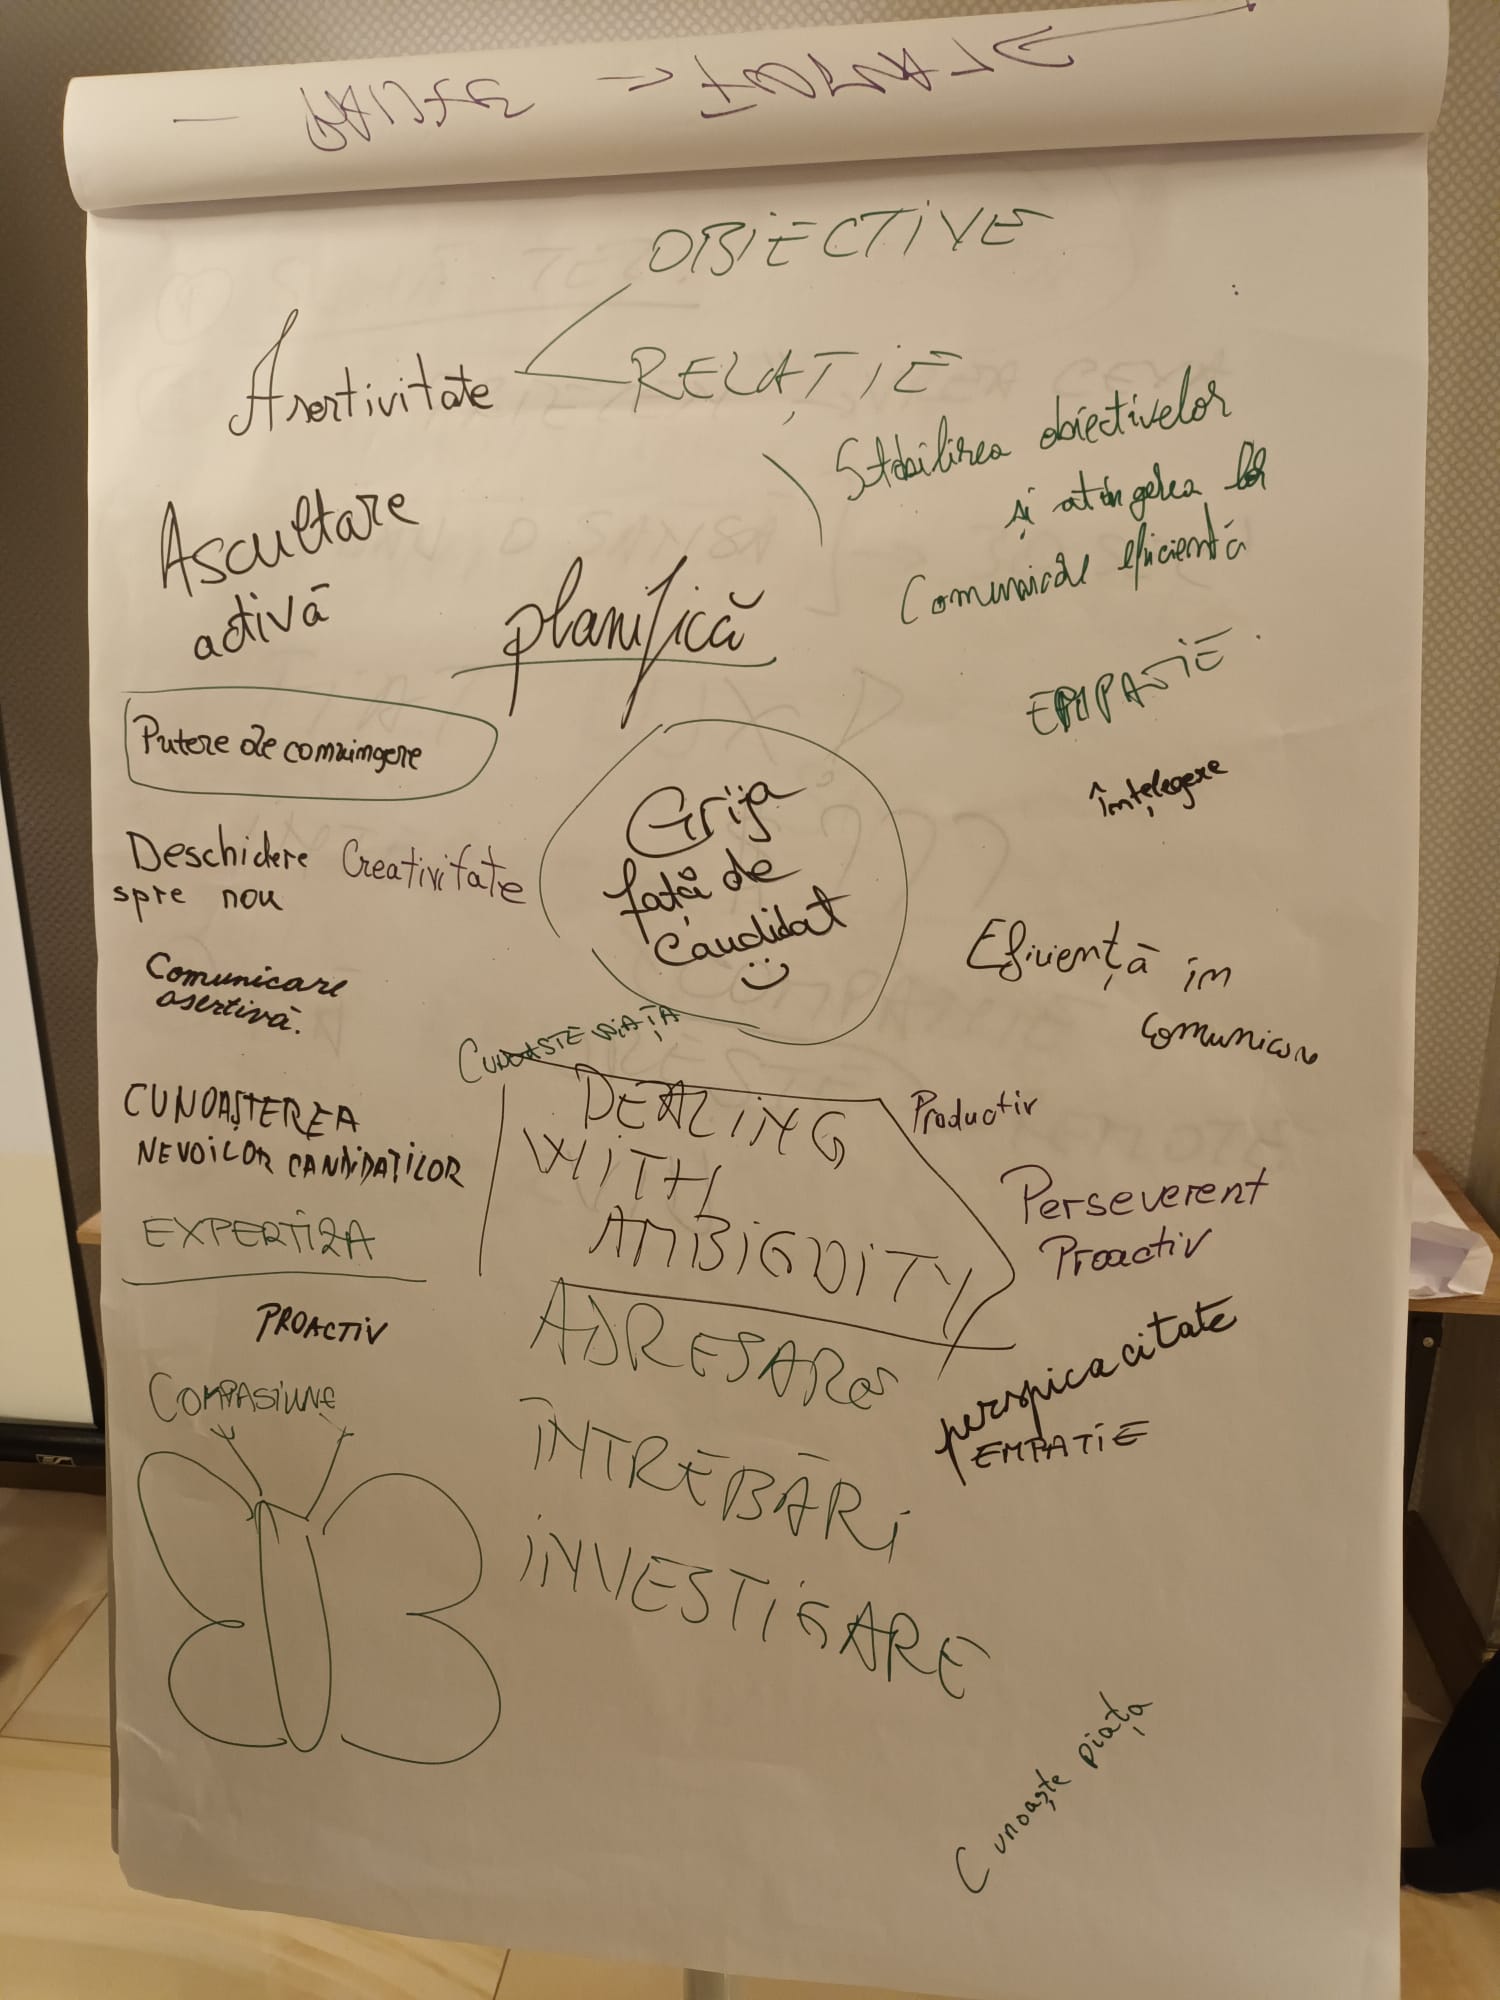 OBIECTIVE
Asertivitate
RELAȚIE
Stabilirea obiectivelor
și atingerea lor
Comunicare eficientă
Ascultare
activă
planifică
EMPATIE
Putere de convingere
înțelegere
Grija
față de
candidat
Deschidere
spre nou
Creativitate
Eficiență în
comunicare
Comunicare
asertivă.
CUNOAȘTE VIAȚA
CUNOAȘTEREA
NEVOILOR CANDIDAȚILOR
DEALING
WITH
AMBIGUITY
Productiv
Perseverent
Proactiv
EXPERTIZA
PROACTIV
ADRESARE
ÎNTREBĂRI
INVESTIGARE
perspicacitate
EMPATIE
COMPASIUNE
Cunoaște piața